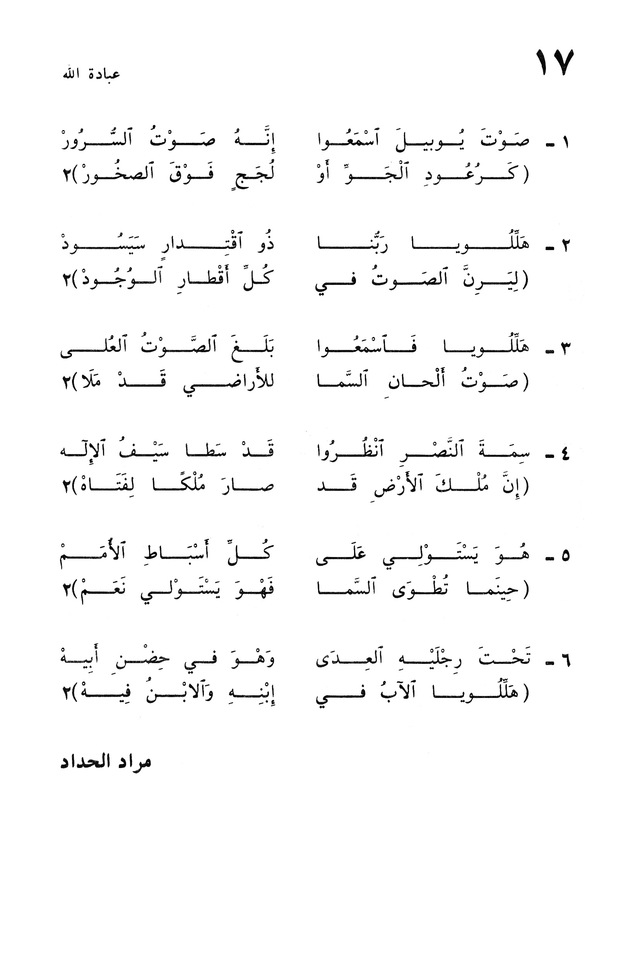 ١٧
عبادة الله
١ - صَوْتَ يُوبِيلَ ٱسْمَعُوا إِنَّهُ صَوْتُ ٱلسُّرُورْ
(كَرُعُودِ ٱلْجَوِّ أَوْ لُجَجٍ فَوْقَ ٱلصخُورْ)٢
٢ - هَلِّلُويا رَبُّنا ذُو ٱقْتِدارٍ سَيَسُودْ
(لِيَرِنَّ ٱلصَوتُ في كُلِّ أَقْطارِ ٱلوُجُودْ)٢
٣ - هَلِّلُويا فَٱسْمَعُوا بَلَغَ ٱلصَّوْتُ ٱلعُلى
(صَوْتُ أَلْحانِ ٱلسَّما للأَراضي قَدْ مَلَا)٢
٤ - سِمَةَ ٱلنَّصْرِ ٱنْظُرُوا قَدْ سَطا سَيْفُ ٱلإِلٰه
(إِنَّ مُلْكَ ٱلأَرْضِ قَد صارَ مُلْكًا لِفَتَاهْ)٢
٥ - هُوَ يَسْتَوْلِي عَلَى كُلِّ أَسْبَاطِ ٱلأُمَمْ
(حِينَما تُطْوَى ٱلسَّما فَهْوَ يَسْتَوْلي نَعَمْ)٢
٦ - تَحْتَ رِجْلَيْهِ ٱلعِدَى وَهْوَ في حِضْنِ أَبِيهْ
(هَلِّلُويا ٱلآبُ في إِبْنِهِ وَٱلابْنُ فِيهْ)٢
مراد الحداد